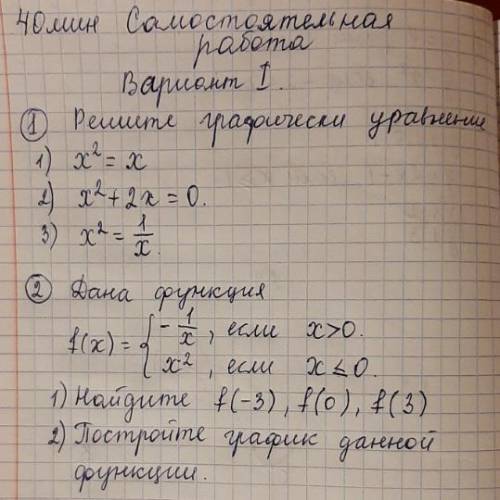 40мин Самостоятельная
работа
Вариант I.
① Решите графически уравнение
1) x² = x
2) x² + 2x = 0.
3) x² = 1/x.
② Дана функция
f(x) = { -1/x, если x>0.
x², если x ≤ 0.
1) Найдите f(-3), f(0), f(3)
2) Постройте график данной
функции.